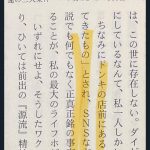 は、この世に存在しない。ダイ
にしているなんて、私一人しか
ちなみにドンキの店前にある
てきたもの」とされ、SNSな
説でも何でもなく正真正銘の事
ることが、私の最大のライフホ
いずれにせよ、そうしたワク
り、ひいては前出の『源流』精